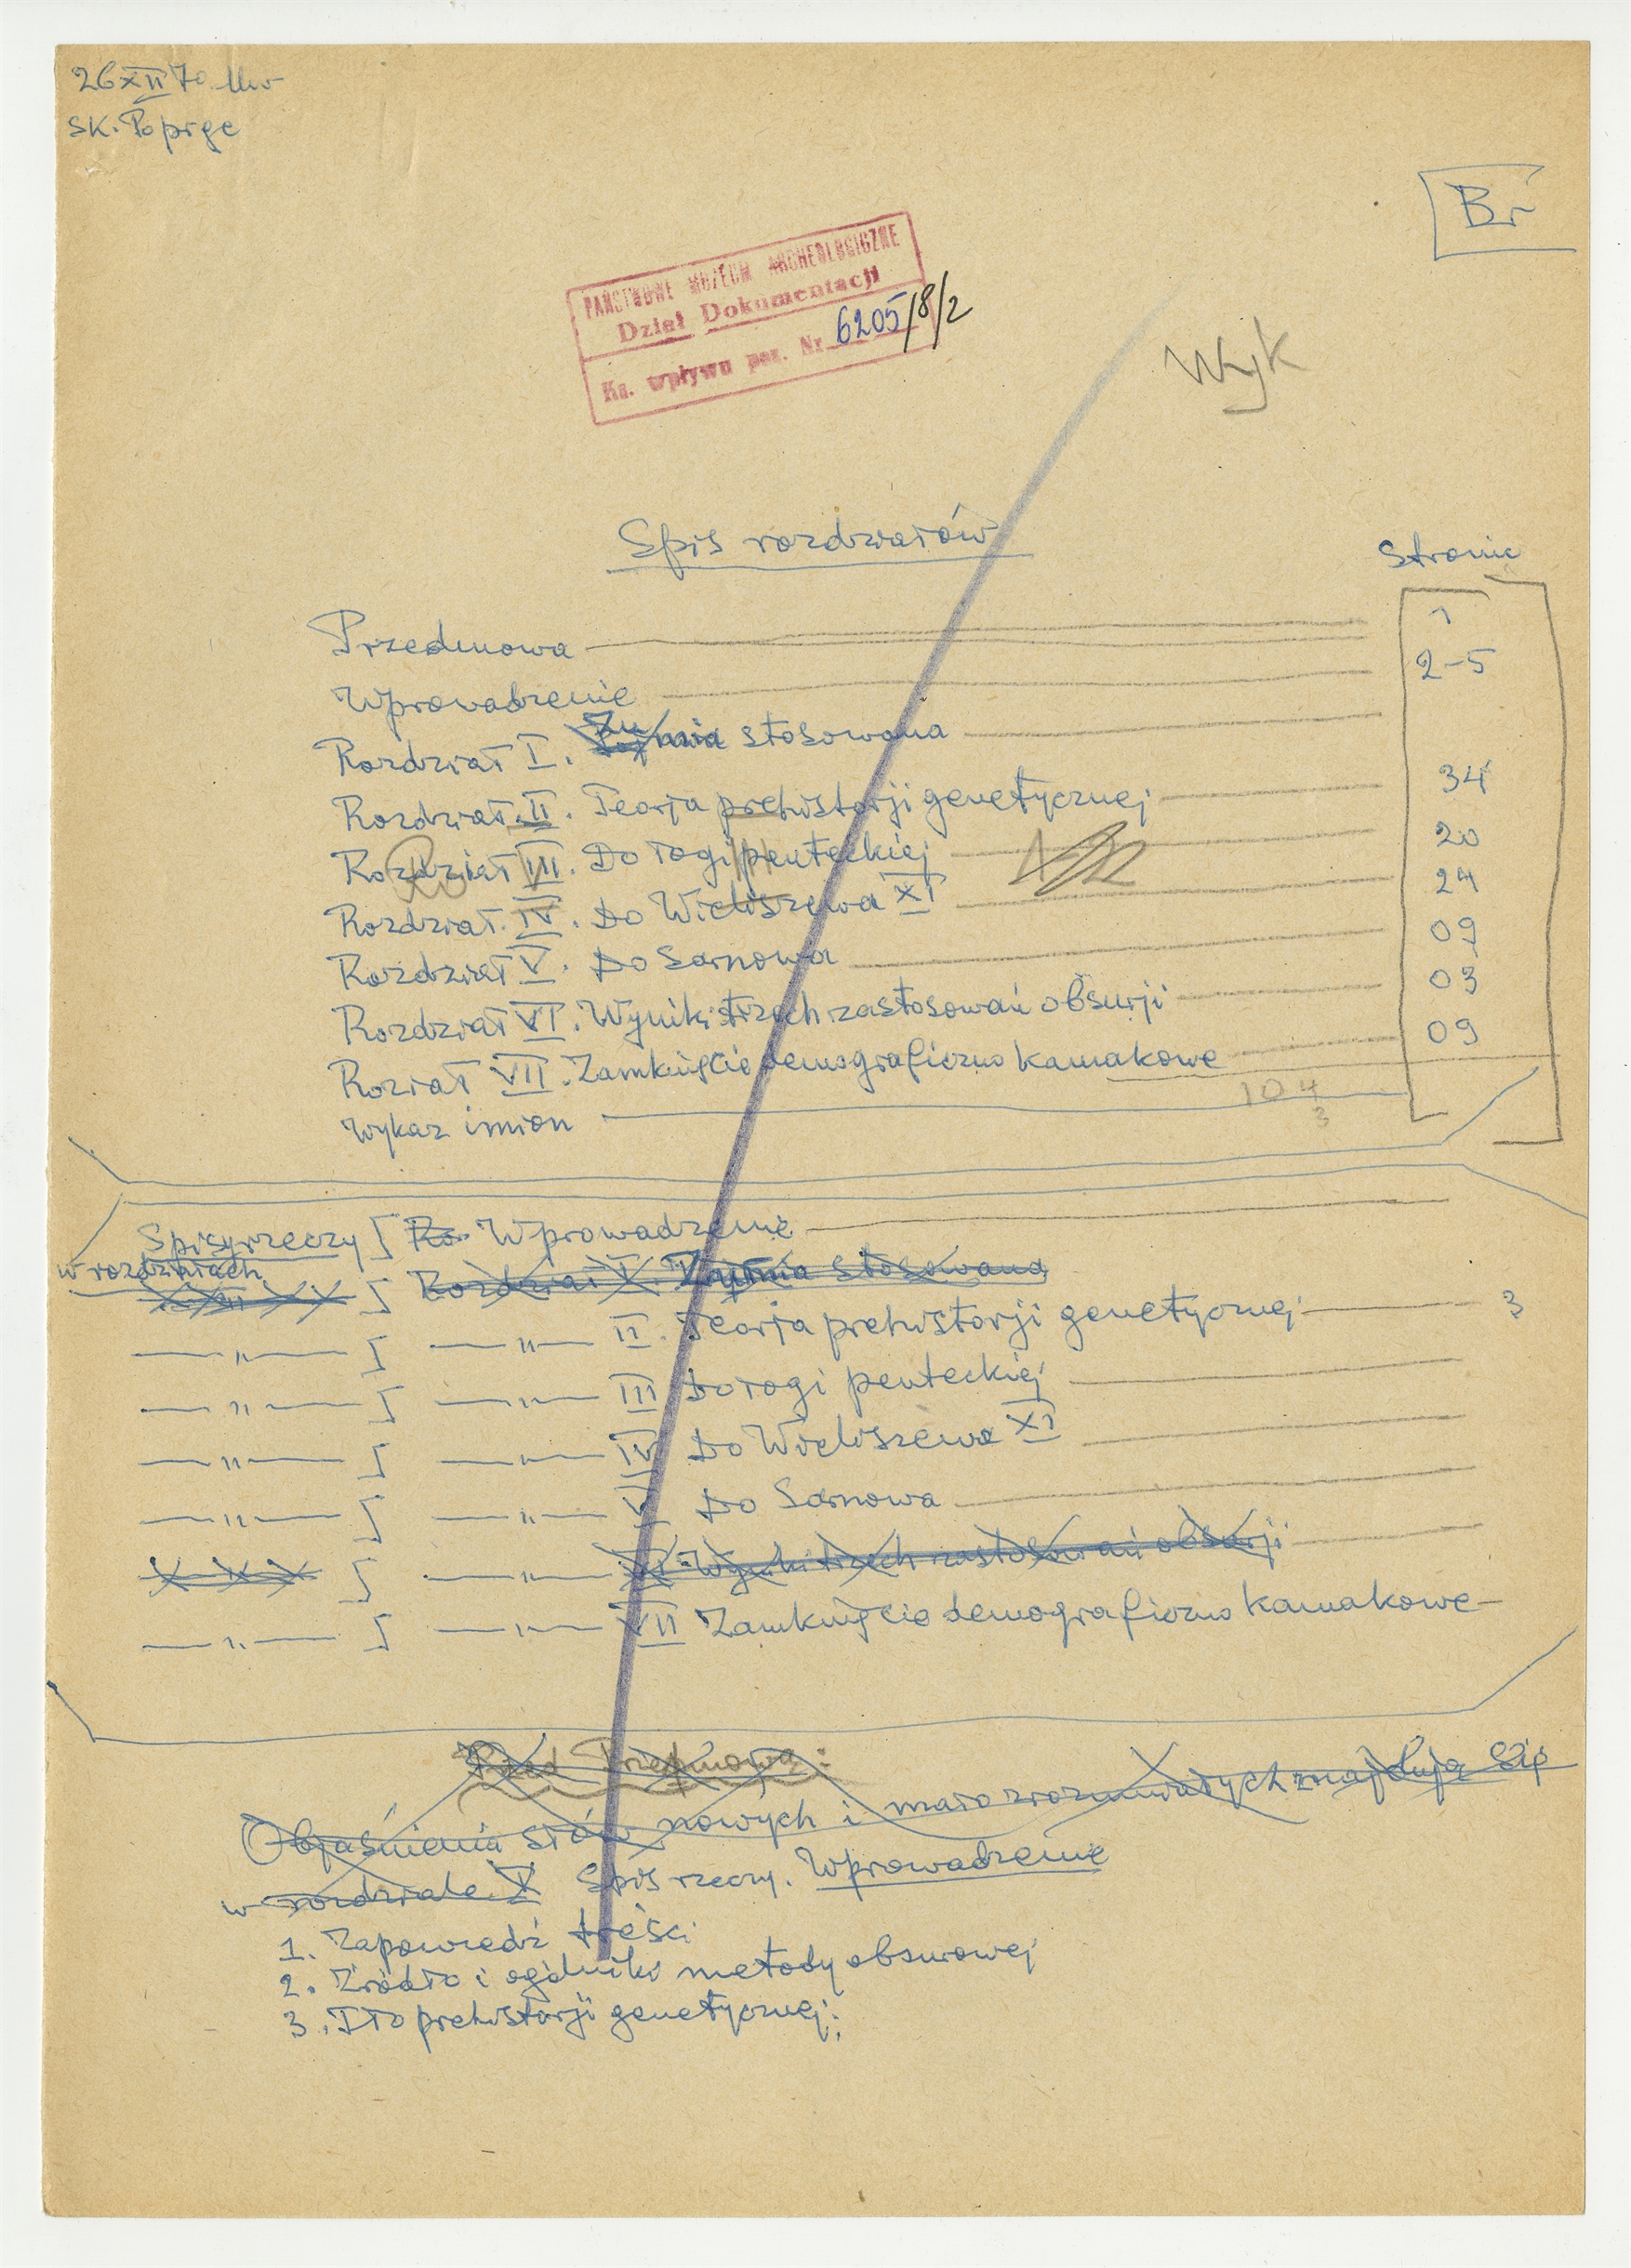 26 XII 70
sk. Poprge
Br
PAŃSTWOWE MUZEUM ARCHEOLOGICZNE
Dział Dokumentacji
Ks. wpływu poz. Nr 6205/8/2
Wyk
Spis rozdziałów
Stronic
Przedmowa 1
Wprowadzenie 2-5
Rozdział I. stosowana
Rozdział II. Teorja prehistorji genetycznej 34
Rozdział III. Do Togi penteckiej 20
Rozdział IV. Do Wieliszewa XI 24
Rozdział V. Do Sarnowa 09
Rozdział VI. Wyniki trzech zastosowań obsurji 03
Roział VII. Zamknięcie demograficzno kamakowe 09
104
3
Wykaz imion
Spisy rzeczy ∫ Ro Wprowadzenie
w rozdziałach
∫ Rozdział I. Żajnia stosowana
—„— ∫ —„— II. Teorja prehistorji genetycznej 3
—„— ∫ —„— III Do Togi penteckiej
—„— ∫ —„— IV Do Wieliszewa XI
—„— ∫ —„— V Do Sarnowa
—„— ∫ —„— VI Wyniki trzech zastosowań obsurji
—„— ∫ —„— VII Zamknięcie demograficzno kamakowe
Przed Przedmową:
Objaśnienia słów nowych i mało zrozumiałych znajdują się
w rozdziale V Spis rzeczy. Wprowadzenie
1. Zapowiedź treści
2. Źródło i ogólniki metody obsurowej
3. Tło prehistorji genetycznej: